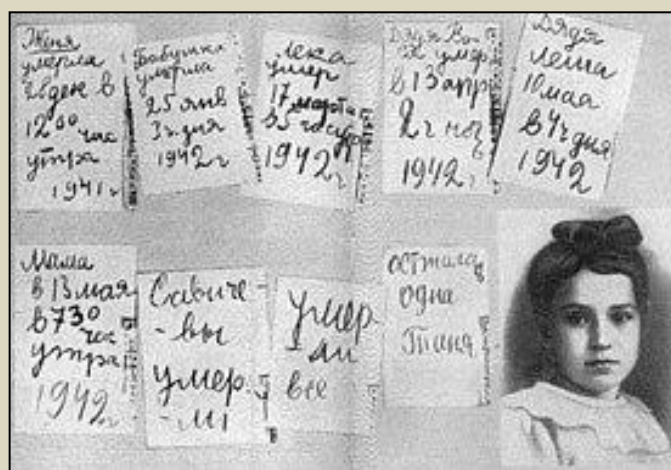 Женя
умерла
28 дек в
12 00 час
утра
1941 г
Бабушка
умерла
25 янв
3 ч дня
1942 г
Лека
умер
17 марта
в 5 час утр
1942 г
Дядя Ва-
ся умер
в 13 апр
2 ч ноч
1942 г
Дядя
Леша
10 мая
в 4 ч дня
1942
Мама
в 13 мая
в 7 30
час
утра
1942 г
Савиче-
-вы
умер-
-ли
умер
-ли
все
осталась
одна
Таня